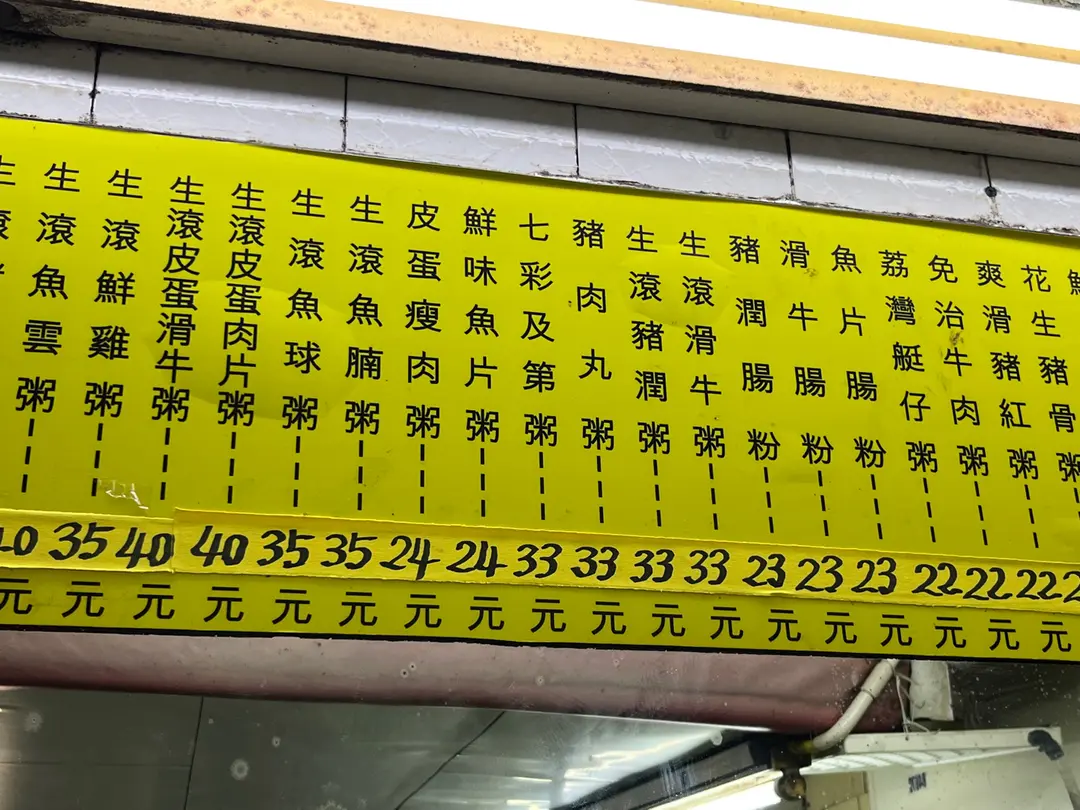 花生豬骨粥
爽滑豬紅粥22元
免治牛肉粥22元
荔灣艇仔粥22元
魚片腸粉23元
滑牛腸粉23元
豬潤腸粉23元
生滾滑牛粥33元
生滾豬潤粥33元
豬肉丸粥33元
七彩及第粥33元
鮮味魚片粥24元
皮蛋瘦肉粥24元
生滾魚腩粥35元
生滾魚球粥35元
生滾皮蛋肉片粥40元
生滾皮蛋滑牛粥40元
生滾鮮雞粥35元
生滾魚雲粥40元